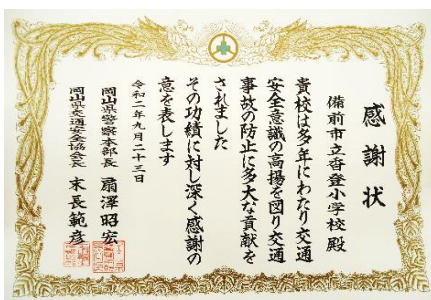 感謝状
備前市立香登小学校殿
貴校は多年にわたり交通
安全意識の高揚を図り交通
事故の防止に多大な貢献を
されました
その功績に対し深く感謝の
意を表します
令和二年九月二十三日
岡山県警察本部長 扇澤昭宏
岡山県交通安全協会会長 末長範彦